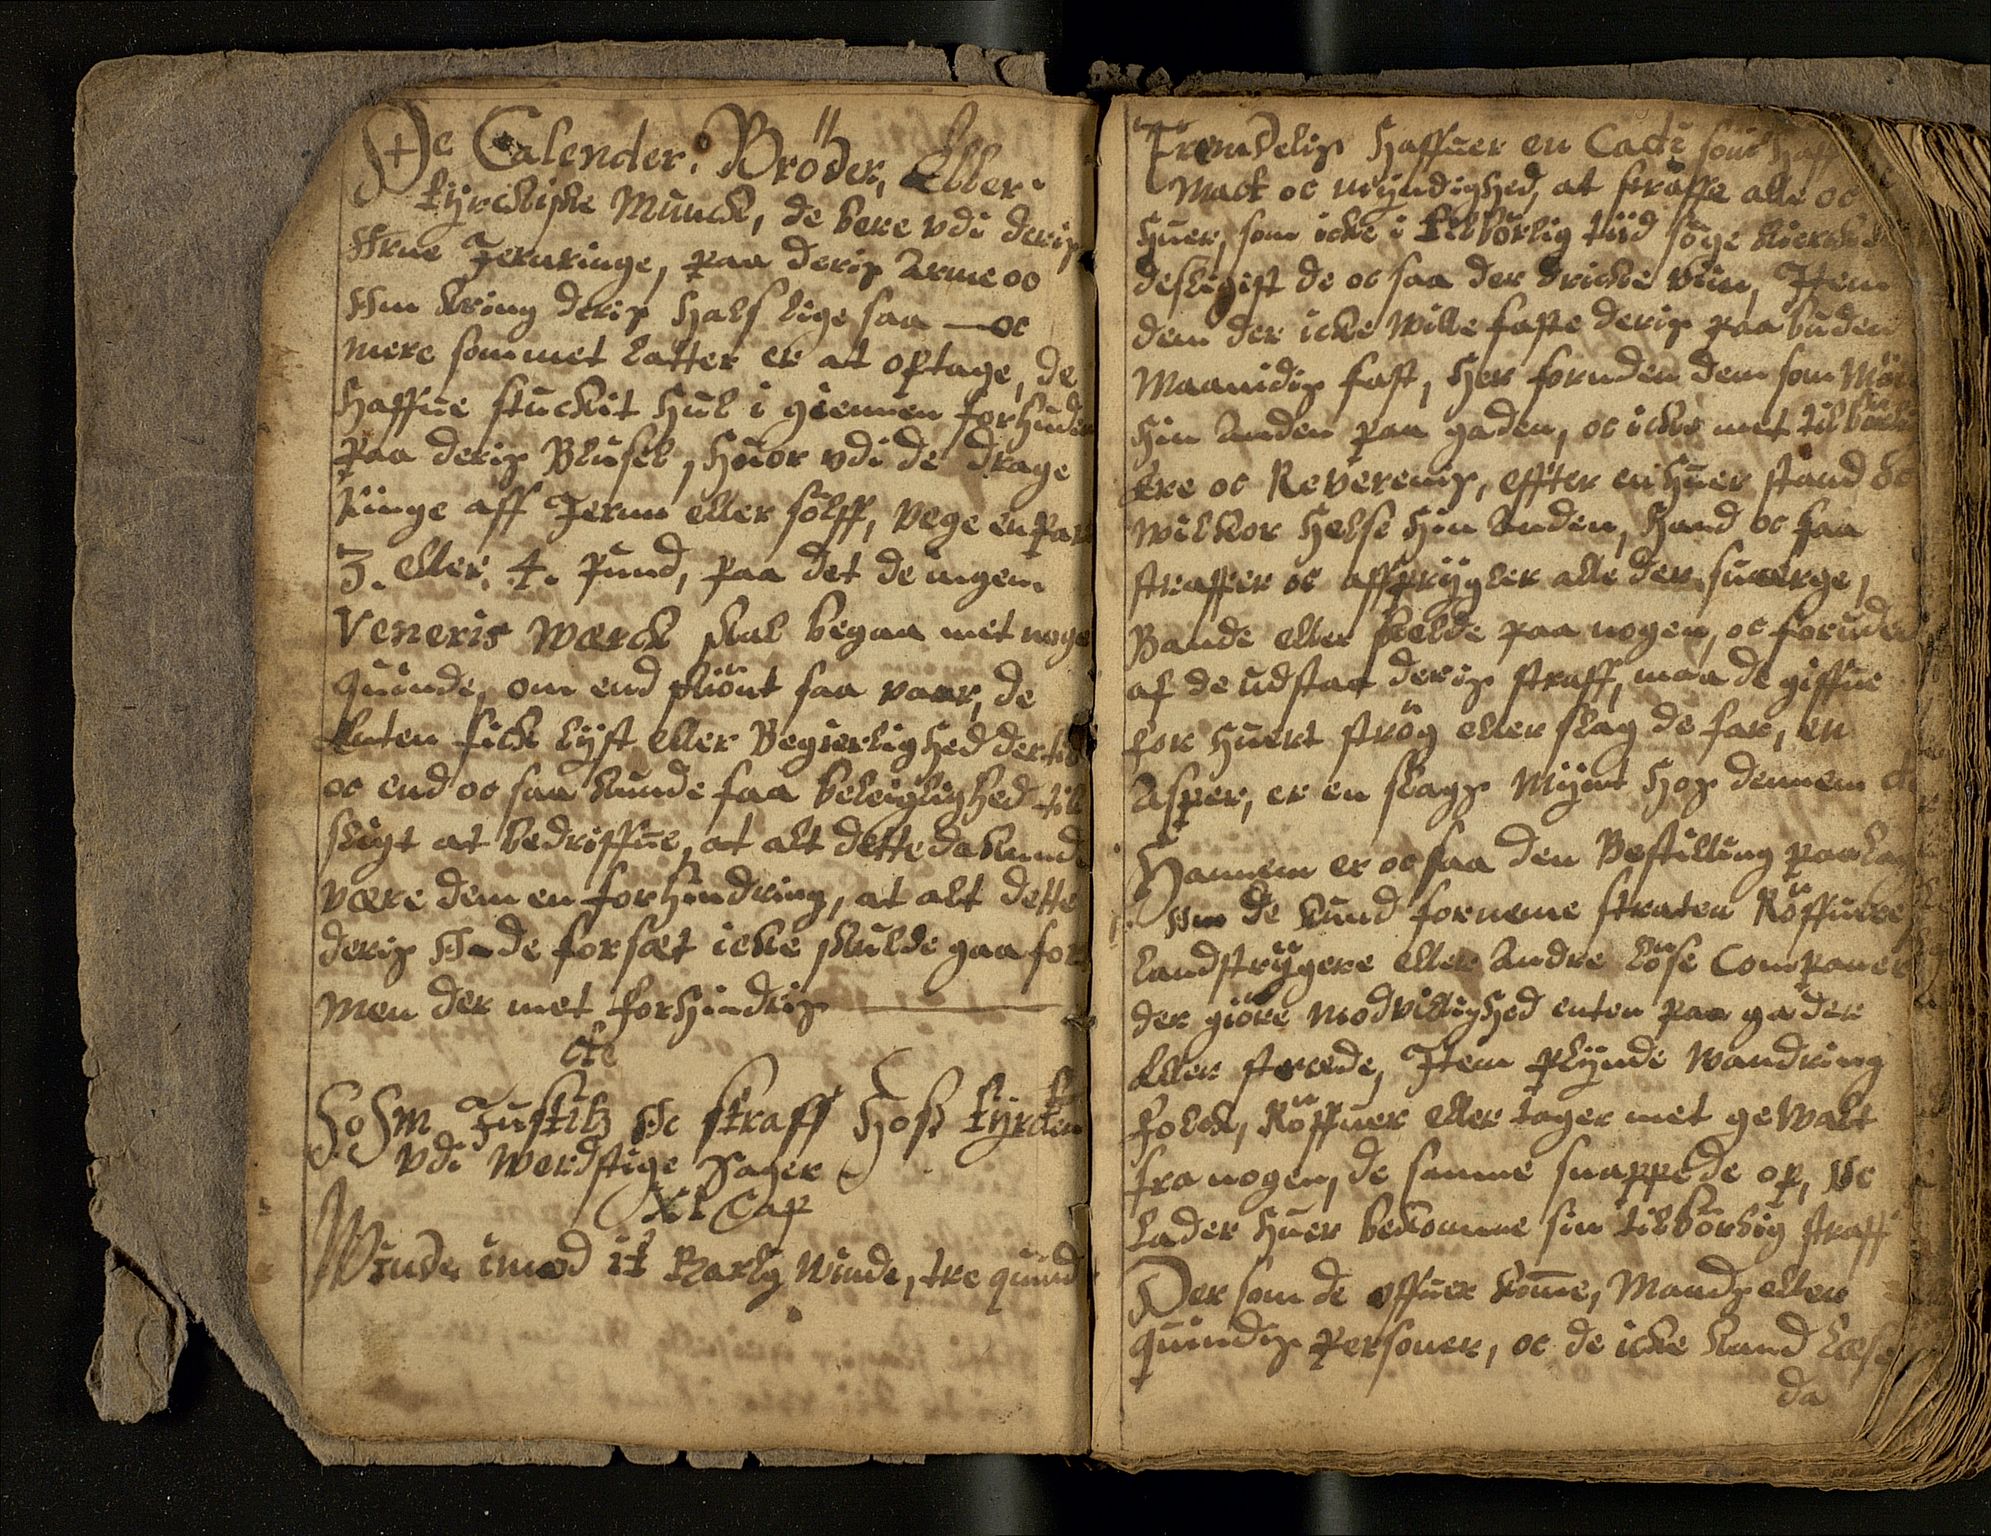 De Calender. Bröder, Eller
tyrckiske Munck, de bere vdi deris
Ørne Jernringe, paa deris Arme oc
Om kring deris Hals lige saa — oc
mere som met latter er at optage, de
Haffue stuckit Hul i giennen forhuden
paa deris Blusel, Huor vdi de drage
Ringe aff Jernn eller sölff, vege en par
3. eller 4. pund, paa det de ingen
Veneris Wærck skal begaa met noge
quinde, om end skiönt saa vaar, de
Enten fick lyst eller Begierlighed dertil
oc end oc saa kunde faa beleiglighed til
sligt at bedriffue, at alt dette da kunde
være dem en forhindring, at alt dette
deris Onde forsæt icke skulde gaa for
men der met forhindris
etc
Om Justitz Oc straff Hoss tyrcken
vdi Werdslige Sager
XI Cap
Vinde imod it Karlig Winde, tre quind
Fremdelis Haffuer en Cadi som Haff
Mact oc myndighed, at straffe alle oc
Huer, som icke i tilbörlig tiid söge kiercke
desligist de oc saa der dricke viin, Item
dem der icke wille faste deris paa buden
Maanidis fast, Her foruden dem som Möde
Hin Anden paa gaden, oc icke met tilbörlig
Ere oc Reverenis, effter en Huer stand oc
wilkor Helse Hin Anden, Hand oc saa
straffer oc affprygler alle der suerge,
Bande eller skelde paa nogen, oc foruden
at de udstaa deris straff, maa de giffue
for Huert strög eller slag de far, en
Asper, er en slags Mynt Hos dennem etc
Hannem er oc saa den Bestilling paalag
Om de kund forneme straten Röffuere
landstrygere eller Andre löse Companer
der giöre modvillighed enten paa gader
Eller strede, Item plynde wandring
folck, Röffuer eller tager met gewalt
fra nogen, de samme snappe de op, Oc
lader Huer bekomme sin tilbörlig straff
Der som de offuer kome, Mands eller
quindis personer, oc de icke kand læse
da